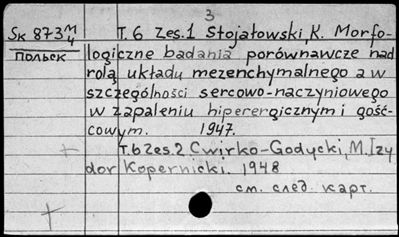 3
Sk 873 M/4 T. 6 Zes. 1 Stojałowski, K. Morfo-
польск logiczne badania porównawcze nad
rolą układu mezenchymalnego a w
szczególności sercowo-naczyniowego
w zapaleniu hiperergicznym i gość-
cowym. 1947.
T. 6 Zes. 2 Cwirko-Godycki, M. Izy
dor Kopernicki. 1948
см. след. карт.